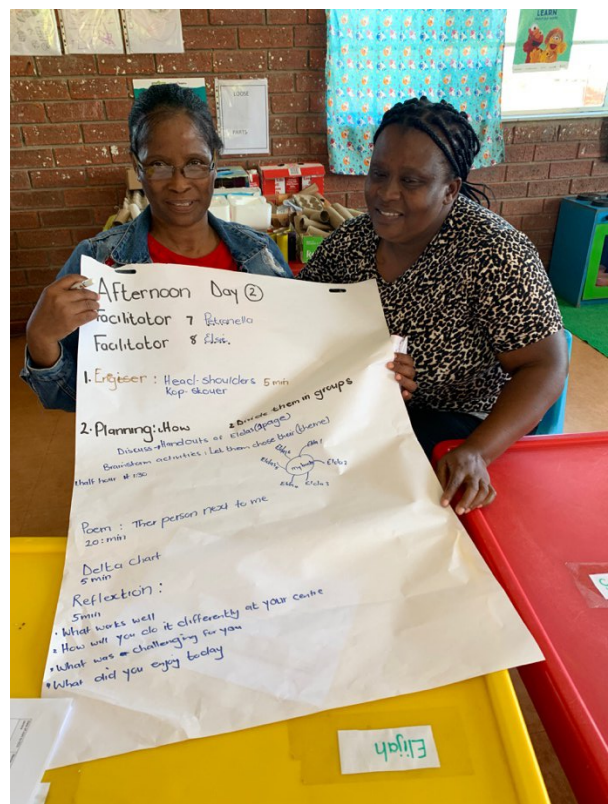 LEARN
LOOSE
PARTS
Afternoon Day ②
Facilitator 7 Petronella
Facilitator 8 Elsie.
1. Engiser : Head-shoulders 5 min
Kop-skouer
2. Planning: How
& Divide them in groups
Discuss → Handouts of Eldas (1 page)
Brainstorm activities : Let them chose their (theme)
half hour # 1:30
my body
Elda 1
Elda 2
Elda 3
Poem : Ther person next to me
20: min
Delta chart
5 min
Reflextion :
5min
• What works well
• How will you do it differently at your centre
• What was challenging for you
• What did you enjoy today
Elijah